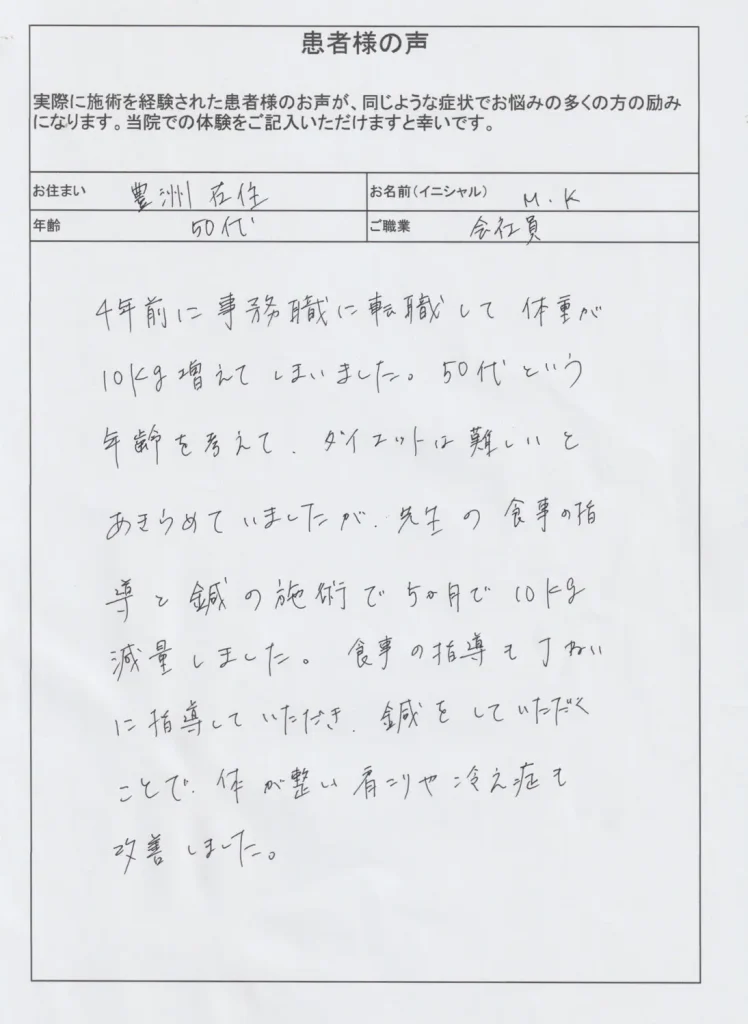 患者様の声
実際に施術を経験された患者様のお声が、同じような症状でお悩みの多くの方の励み
になります。当院での体験をご記入いただけますと幸いです。
お住まい 豊洲在住 お名前(イニシャル) M.K
年齢 50代 ご職業 会社員
4年前に事務職に転職して 体重が
10kg増えてしまいました。50代という
年齢を考えて、ダイエットは難しいと
あきらめていましたが、先生の食事の指
導と鍼の施術で5ヵ月で10kg
減量しました。食事の指導も丁ねい
に指導していただき、鍼をしていただく
ことで、体が整い肩こりや冷え症も
改善しました。